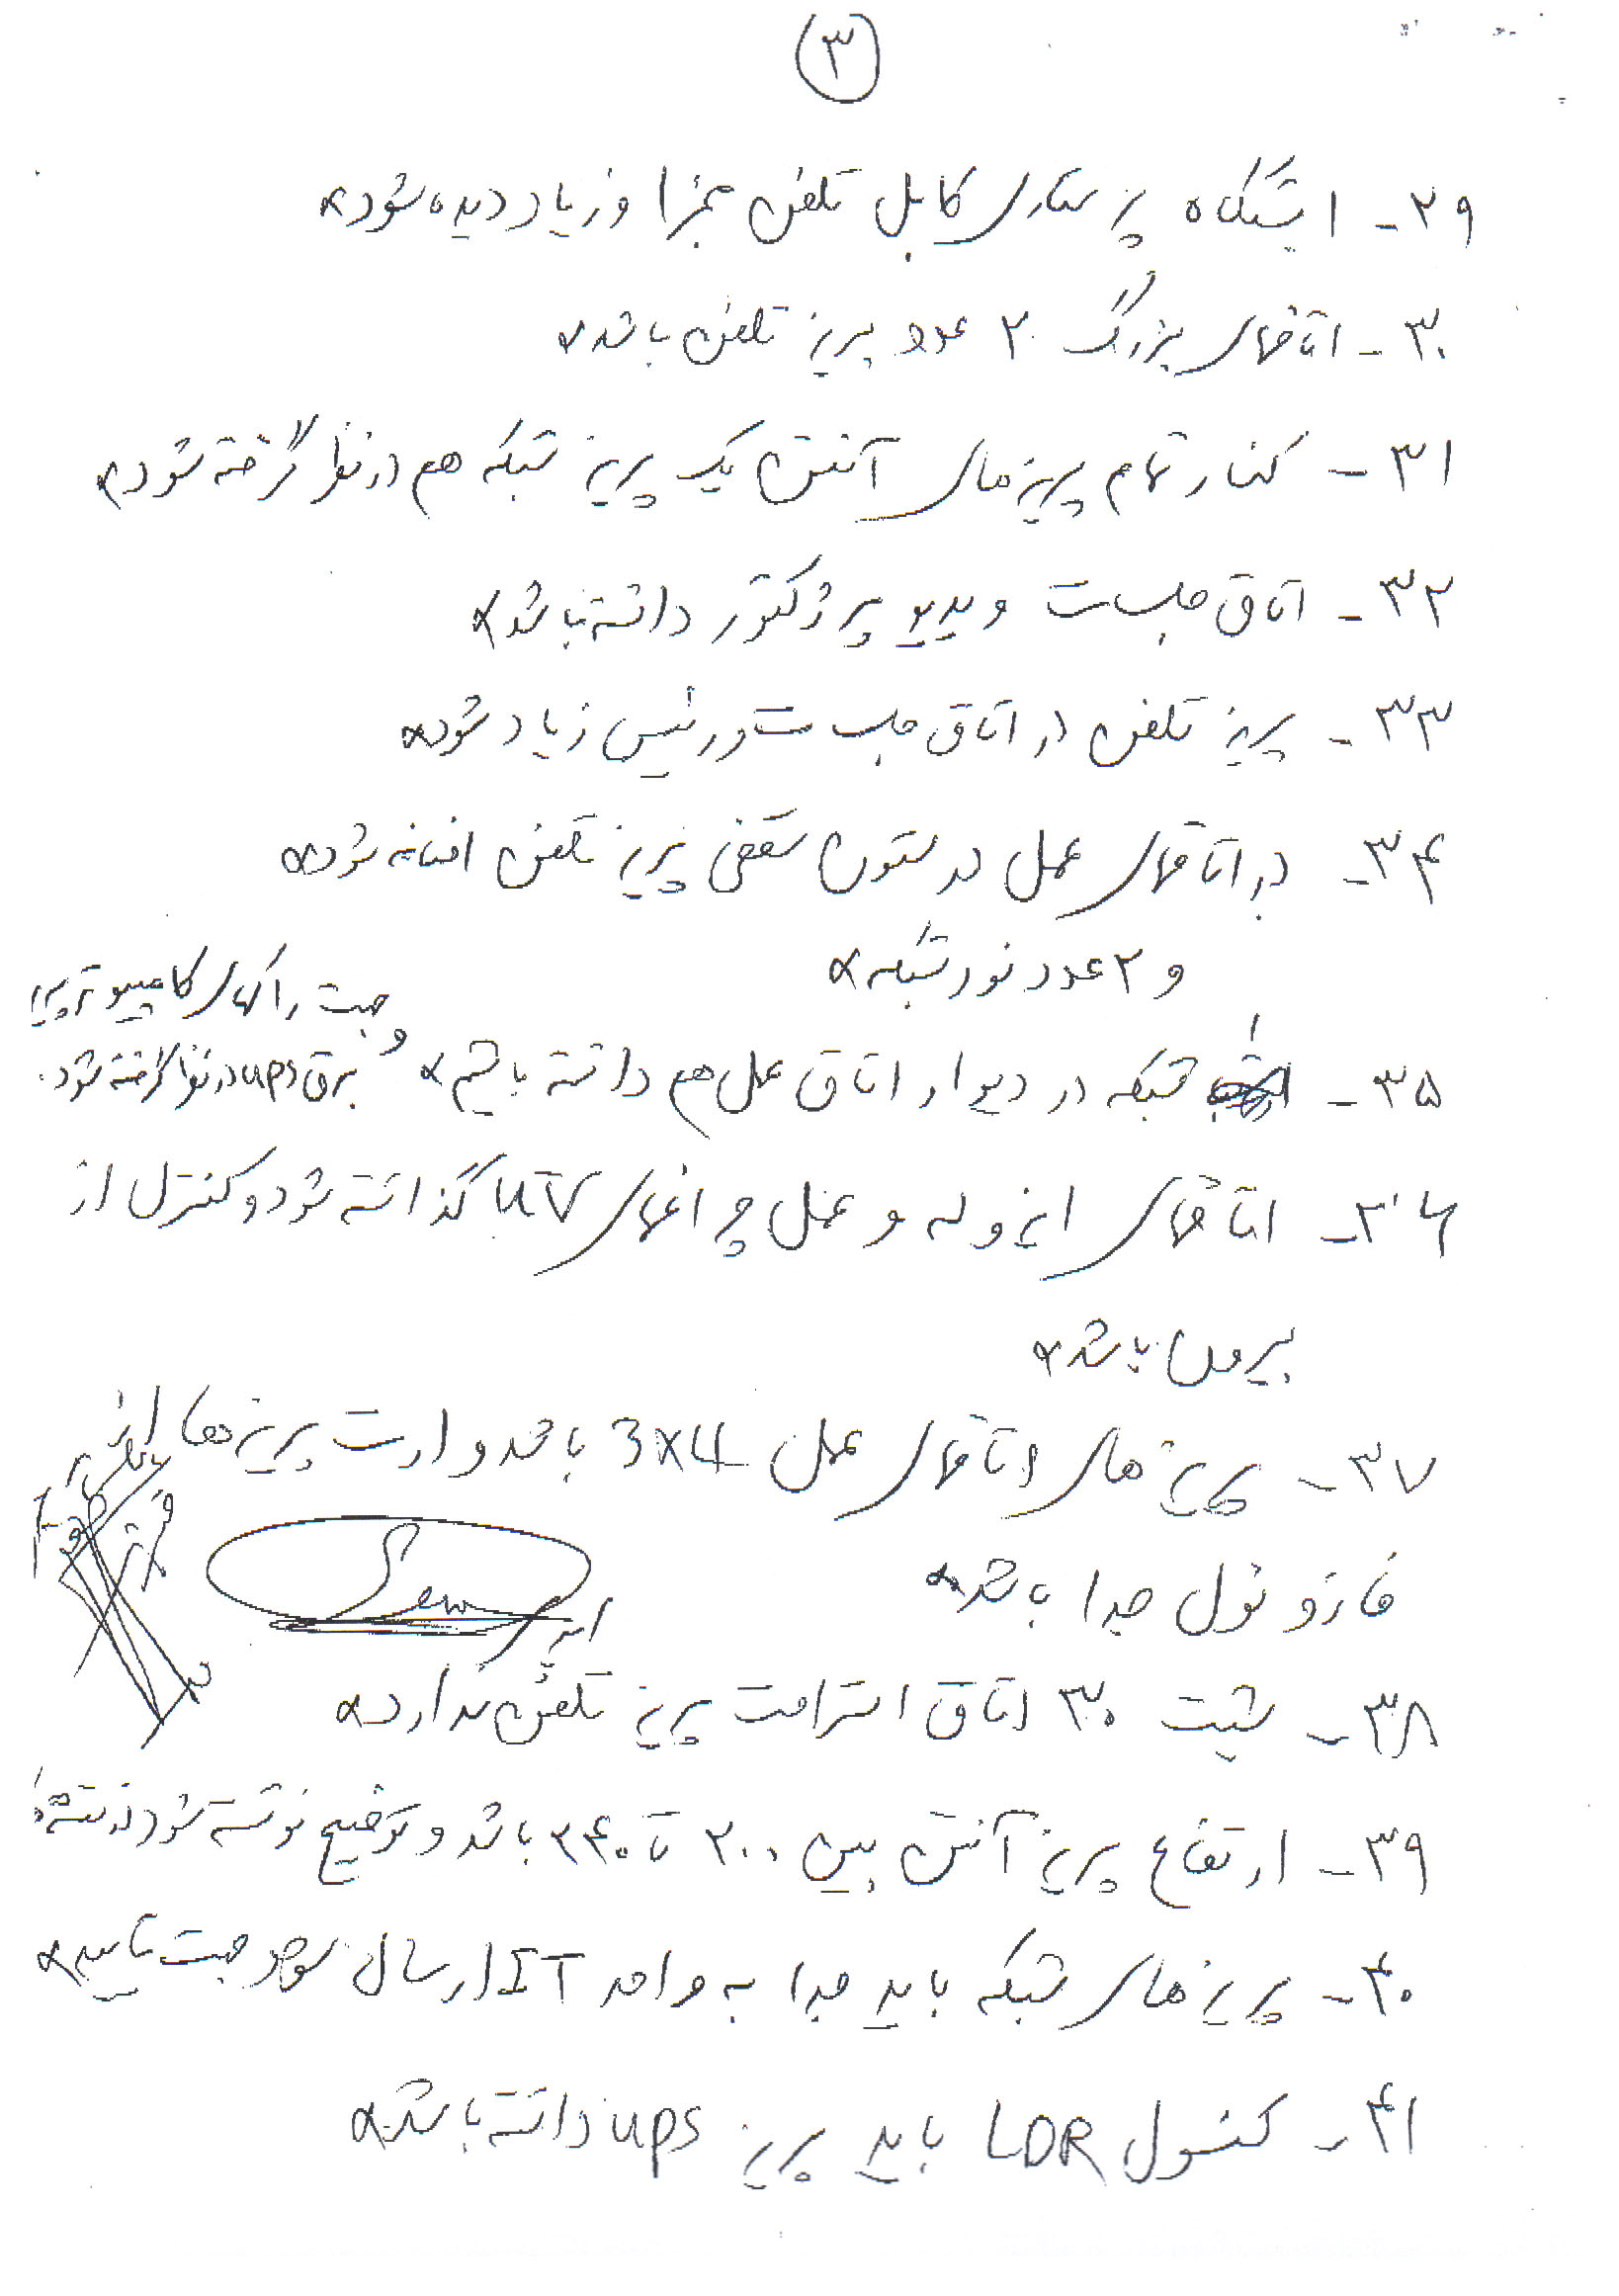 ۳
۲۹- ایستگاه پرستاری کابل تلفن مجزا و زیاد دیده شود
۳۰- اتاقهای بزرگ ۲ عدد پریز تلفن باشد
۳۱- کنار تمام پریزهای آنتن یک پریز شبکه هم در نظر گرفته شود
۳۲- اتاق جلسات ویدیو پرژکتور داشته باشد
۳۳- پریز تلفن در اتاق جلسات و رئیس زیاد شود
۳۴- در اتاقهای عمل در ستون سقفی پریز تلفن اضافه شود
و ۲ عدد نود شبکه
۳۵- شبکه در دیوار اتاق عمل هم داشته باشیم و جهت راکهای کامپیوتر پریز
برق ups در نظر گرفته شود.
۳۶- اتاقهای ایزوله و عمل چراغهای UV گذاشته شود و کنترل از
بیرون باشد
۳۷- پریزهای اتاقهای عمل 3x4 باشد و ارت پریزها از
فاز و نول جدا باشد
۳۸- شیت ۳۰ اتاق استراحت پریز تلفن ندارد
۳۹- ارتفاع پریز آنتن بین ۲۰۰ تا ۲۴۰ باشد و توضیح نوشته شود در نقشه
۴۰- پریزهای شبکه باید جدا به واحد IT ارسال شود جهت تایید
۴۱- کنسول LDR باید پریز ups داشته باشد